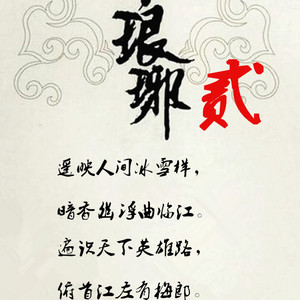 琅琊
贰
遥映人间冰雪样，
暗香幽浮曲临江。
遍识天下英雄路，
俯首江左有梅郎。